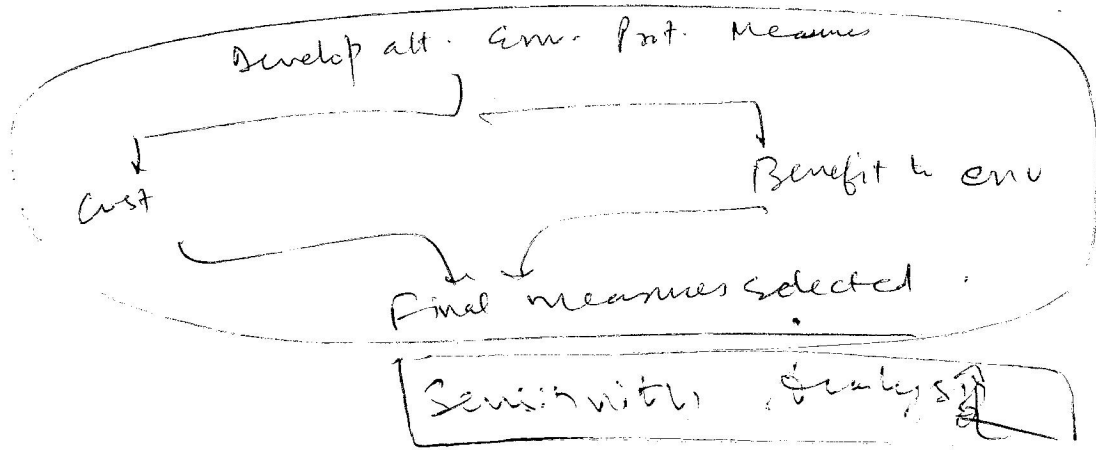 Develop alt. Env. Prot. Measures
Cost
Benefit to env
Final measures selected.
Sensitivity Analysis